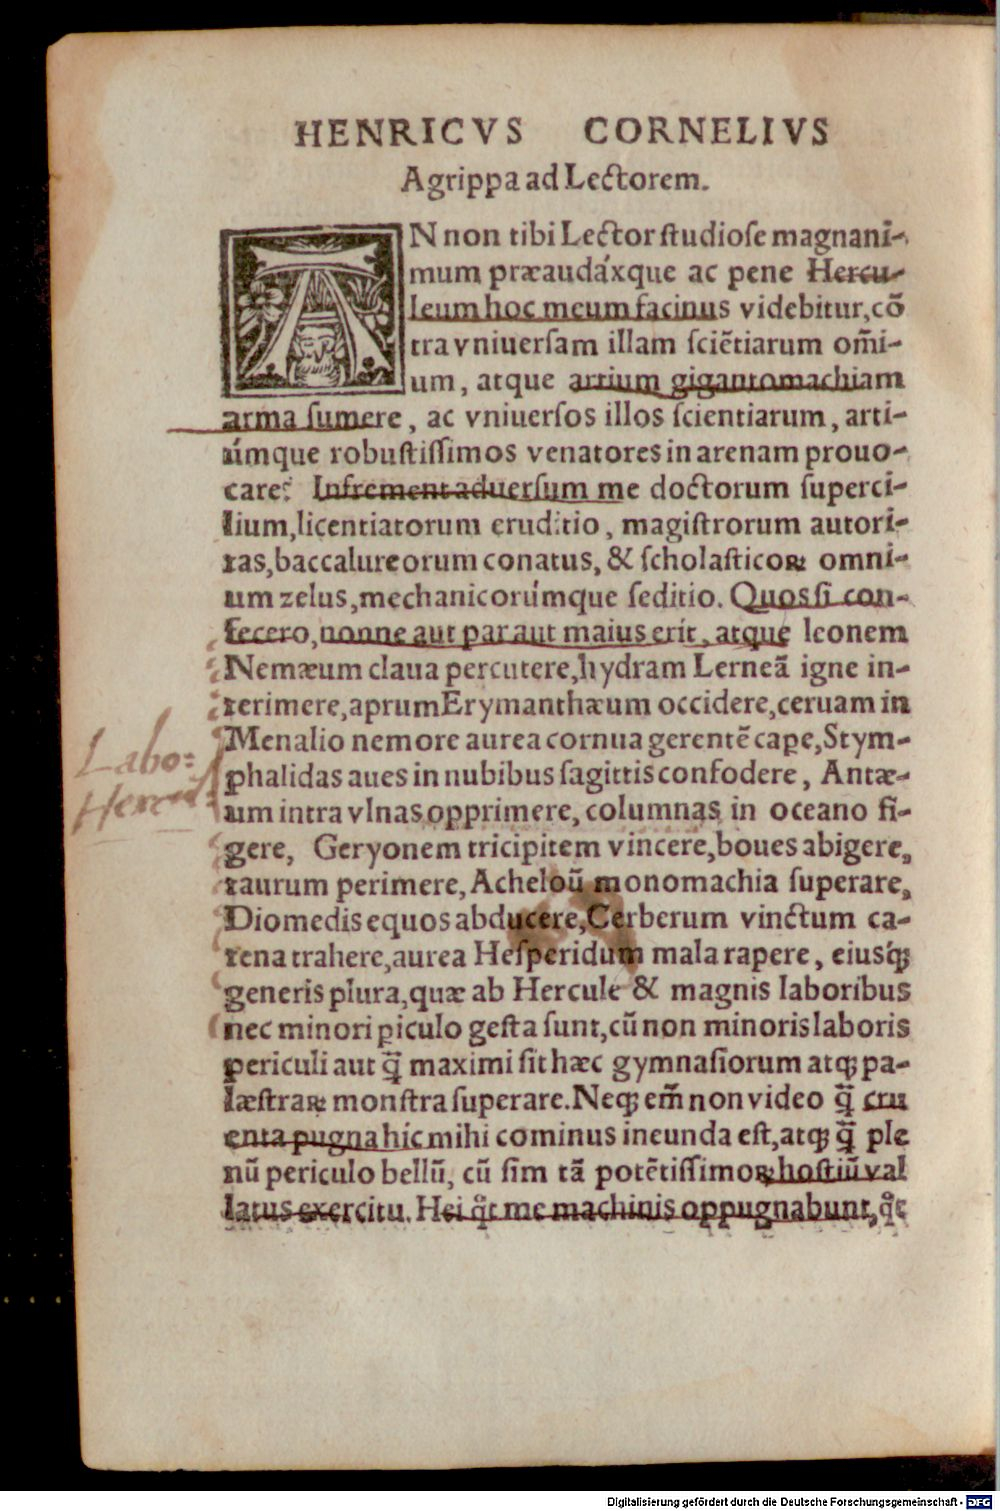 HENRICVS CORNELIVS
Agrippa ad Lectorem.
AN non tibi Lector ſtudioſe magnani-
mum præaudáxque ac pene Hercu-
leum hoc meum facinus videbitur, cõ
tra vniuerſam illam ſciẽtiarum om̃i-
um, atque artium gigantomachiam
arma ſumere, ac vniuerſos illos ſcientiarum, arti-
úmque robuſtiſſimos venatores in arenam prouo-
care? Infrement aduerſum me doctorum ſuperci-
lium, licentiatorum eruditio, magiſtrorum autori-
tas, baccalureorum conatus, & ſcholaſticoꝝ omni-
um zelus, mechanicorúmque ſeditio. Quos ſi con-
fecero, nonne aut par aut maius erit, atque leonem
Nemæum claua percutere, hydram Lerneã igne in-
terimere, aprum Erymanthæum occidere, ceruam in
Menalio nemore aurea cornua gerentẽ cape, Stym-
phalidas aues in nubibus ſagittis confodere, Antæ-
um intra vlnas opprimere, columnas in oceano fi-
gere, Geryonem tricipitem vincere, boues abigere,
taurum perimere, Acheloũ monomachia ſuperare,
Diomedis equos abducere, Cerberum vinctum ca-
tena trahere, aurea Heſperidum mala rapere, eiuſq́ꝫ
generis plura, quæ ab Hercule & magnis laboribus
nec minori ꝑiculo geſta ſunt, cũ non minoris laboris
periculi aut q̃̃ maximi ſit hæc gymnaſiorum atqꝫ pa-
læſtraꝝ monſtra ſuperare. Neqꝫ em̃ non video q̃̃ cru
enta pugna hic mihi cominus ineunda eſt, atqꝫ q̃̃ ple
nũ periculo bellũ, cũ ſim tã potẽtiſſimoꝝ hoſtiũ val
latus exercitu. Hei qͣ̃t me machinis oppugnabunt, qͣ̃t
Labo:
Hercul:
Digitalisierung gefördert durch die Deutsche Forschungsgemeinschaft - DFG